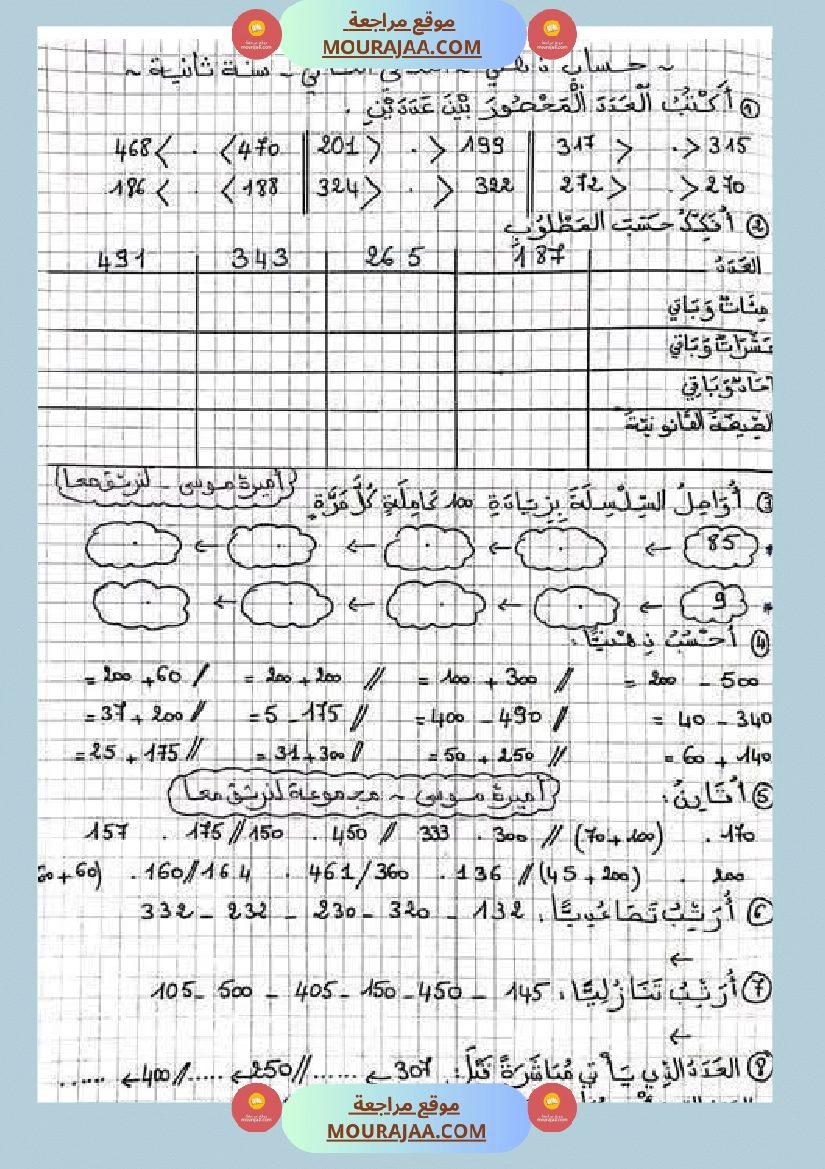 موقع مراجعة
MOURAJAA.COM
~ حساب ذهني ~ ـ سنة ثانية ~
① أَكْتُبُ الْعَدَدَ الْمَحْصُورَ بَيْنَ عَدَدَيْنِ .
315 > . > 317 || 199 < . < 201 | 470 > . > 468
270 > . > 272 322 < . < 324 | 188 > . > 186
② أُفَكِّكُ حَسَبَ المَطْلُوبِ
العَدَدُ 187 265 343 491
مِئَاتٌ وَبَاقِي
عَشَرَاتٌ وَبَاقِي
آحَادٌ وَبَاقِي
الصِّيغَةُ القَانُونِيَّةُ
أميرة موسى ـ لنرتقي معا
③ أُوَاصِلُ السِّلْسِلَةَ بِزِيَادَةِ 100 كَامِلَةٍ كُلَّ مَرَّةٍ
* 85 ← . ← . ← . ← .
* 9 ← . ← . ← . ← .
④ أَحْسُبُ ذِهْنِيًّا :
500 - 200 = // 300 + 100 = // 200 + 200 = / 60 + 200 =
340 - 40 = // 490 - 400 = // 175 - 5 = // 200 + 37 =
140 + 60 = // 250 + 50 = // 300 + 31 = // 175 + 25 =
⑤ أُقَارِنُ :
أميرة موسى ~ مجموعة لنرتقي معا
170 . (100 + 70) // 300 . 333 // 450 . 150 // 175 . 157
200 . (200 + 45) // 136 . 360 / 461 . 164 // 160 . + 60)
⑥ أُرَتِّبُ تَصَاعُدِيًّا : 132 - 320 - 230 - 232 - 332
←
⑦ أُرَتِّبُ تَنَازُلِيًّا : 145 - 450 - 150 - 405 - 500 - 105
←
⑧ العَدَدُ الذِي يَأْتِي مُبَاشَرَةً قَبْلَ : 307 ← ...... // 250 ← ...... // 400 ← ......
موقع مراجعة
MOURAJAA.COM